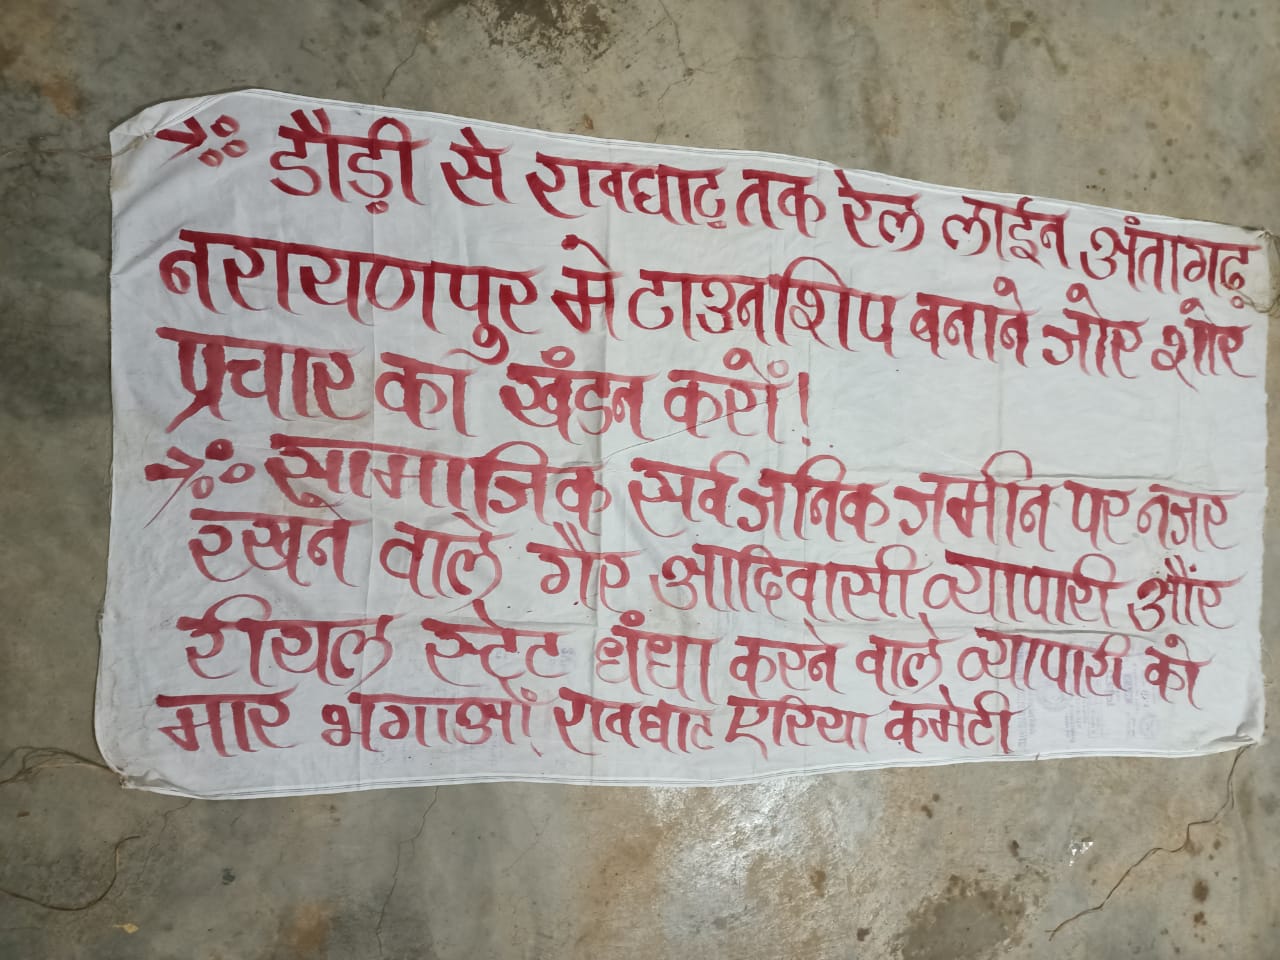 डौड़ी से रावघाट तक रेल लाईन अंतागढ़
नरायणपुर मे टाउनशिप बनाने जोर शोर
प्रचार का खंडन करों!
सामाजिक सर्वजनिक जमीन पर नजर
रखने वाले गैर आदिवासी व्यापारी और
रीयल स्टेट धंधा करने वाले व्यापारी को
मार भगाओं! रावघाट एरिया कमेटी